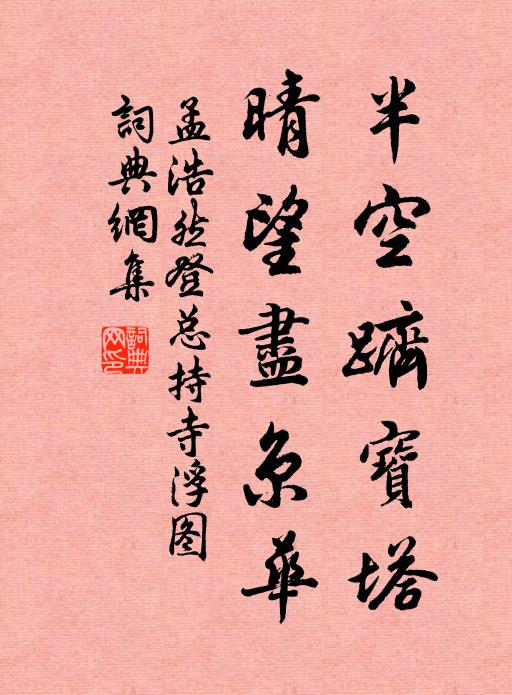 半空躋寶塔
晴望盡京華
孟浩然登总持寺浮图
詞典網集
詞典網印